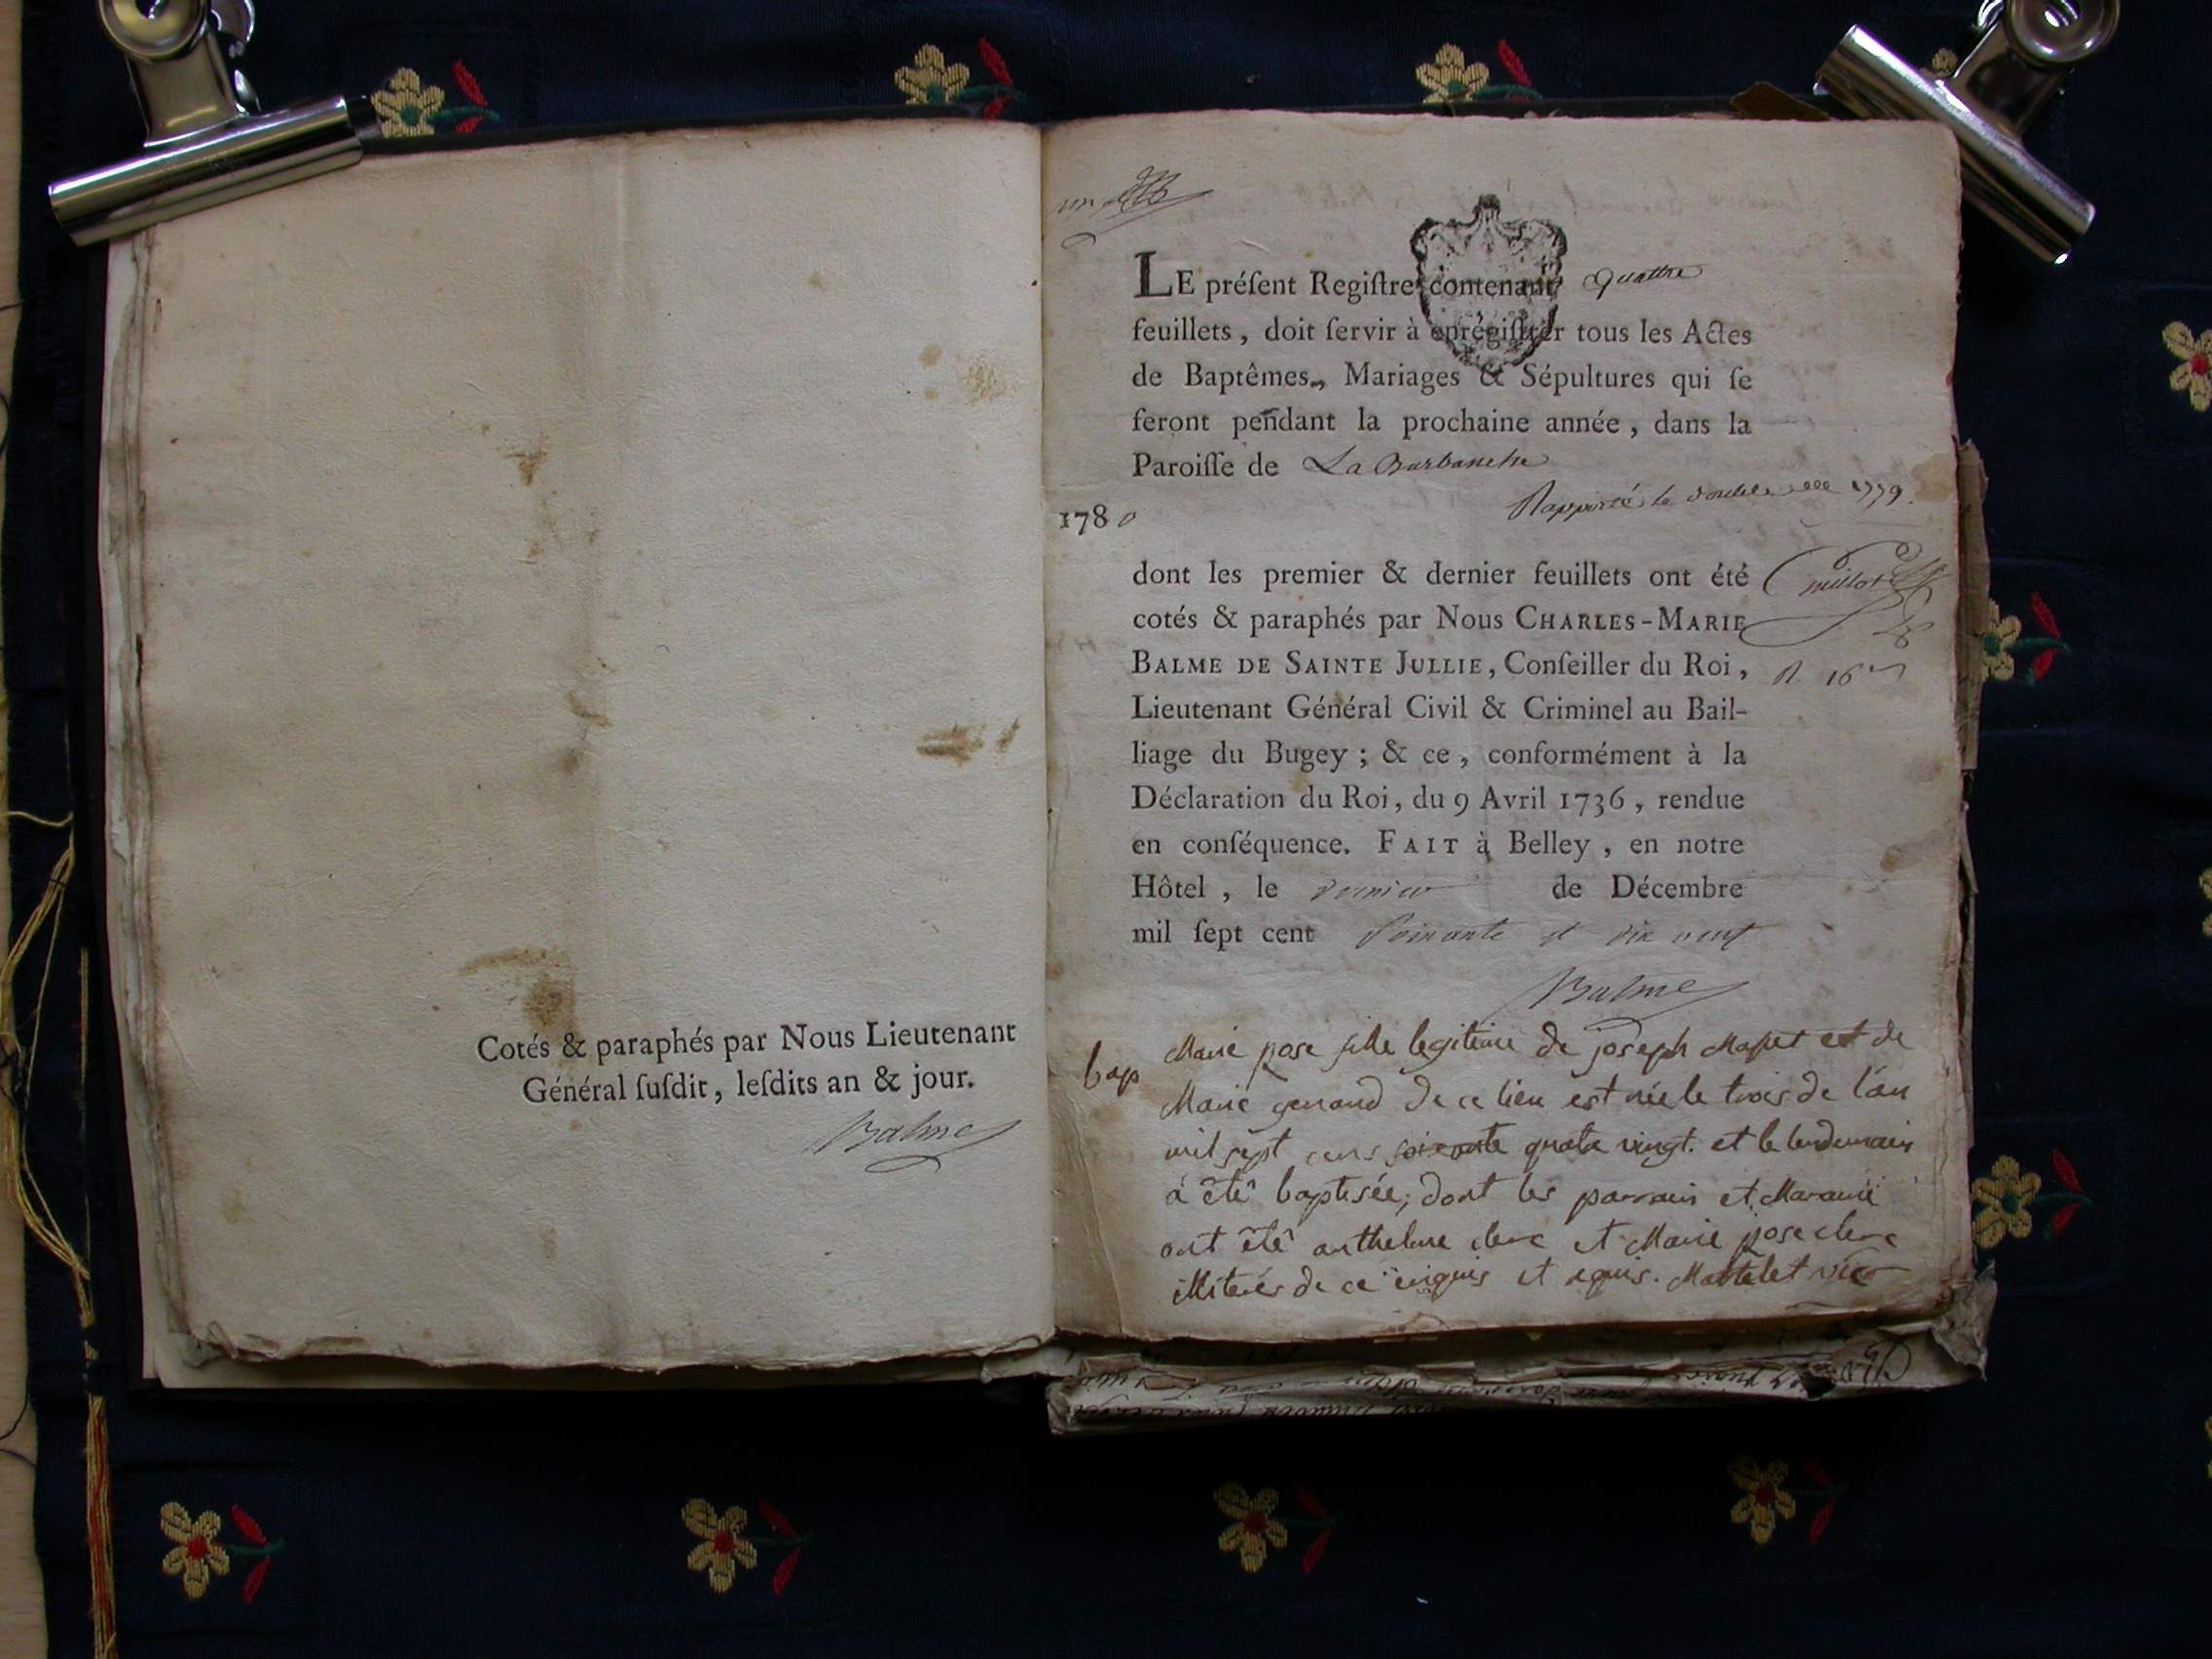 Cotés & paraphés par Nous Lieutenant
Général ſuſdit, leſdits an & jour.
Balme
un
LE préſent Regiſtre contenant quattre
feuillets, doit ſervir à enrégiſtrer tous les Actes
de Baptêmes, Mariages & Sépultures qui ſe
feront pendant la prochaine année, dans la
Paroiſſe de La Burbanche
Rapporté le double 1779.
1780
dont les premier & dernier feuillets ont été
cotés & paraphés par Nous CHARLES-MARIE
BALME DE SAINTE JULLIE, Conſeiller du Roi,
Lieutenant Général Civil & Criminel au Bail-
liage du Bugey ; & ce, conformément à la
Déclaration du Roi, du 9 Avril 1736, rendue
en conſéquence. FAIT à Belley, en notre
Hôtel, le dernier de Décembre
mil ſept cent soixante et dix neuf
Balme
millot
R. 16
bap
Marie pose fille legitime de joseph et de
Marie genand de ce lieu est née le trois de l'an
mil sept cens soixante quatre vingt. et le lendemain
a été baptisée, dont les parrain et Maraine
ont été anthelme clerc et Marie pose clerc
illiterés de ce enquis et requis. Martelet